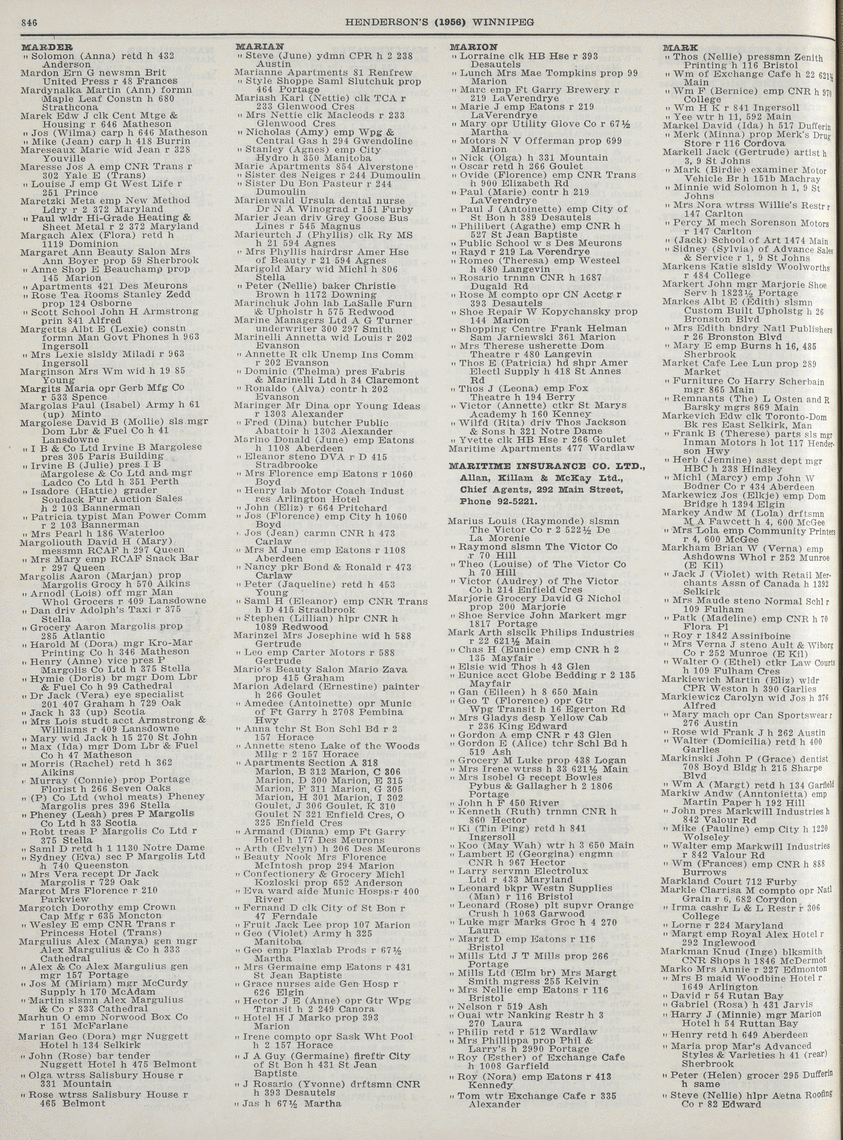 846
HENDERSON'S (1956) WINNIPEG
MARDER
" Solomon (Anna) retd h 432
Anderson
Mardon Ern G newsmn Brit
United Press r 48 Frances
Mardynalka Martin (Ann) formn
Maple Leaf Constn h 680
Strathcona
Marek Edw J clk Cent Mtge &
Housing r 646 Matheson
" Jos (Wilma) carp h 646 Matheson
" Mike (Jean) carp h 418 Burrin
Mareseaux Marie wid Jean r 328
Youville
Maresse Jos A emp CNR Trans r
302 Yale E (Trans)
" Louise J emp Gt West Life r
251 Prince
Maretzki Meta emp New Method
Ldry r 2 372 Maryland
" Paul wldr Hi-Grade Heating &
Sheet Metal r 2 372 Maryland
Margach Alex (Flora) retd h
1119 Dominion
Margaret Ann Beauty Salon Mrs
Ann Boyer prop 59 Sherbrook
" Anne Shop E Beauchamp prop
145 Marion
" Apartments 421 Des Meurons
" Rose Tea Rooms Stanley Zedd
prop 124 Osborne
" Scott School John H Armstrong
prin 841 Alfred
Margetts Albt E (Lexie) constn
formn Man Govt Phones h 963
Ingersoll
" Mrs Lexie slsldy Miladi r 963
Ingersoll
Marginson Mrs Wm wid h 19 85
Young
Margits Maria opr Gerb Mfg Co
r 533 Spence
Margolas Paul (Isabel) Army h 61
(up) Minto
Margolese David B (Mollie) sls mgr
Dom Lbr & Fuel Co h 41
Lansdowne
" I B & Co Ltd Irvine B Margolese
pres 305 Paris Building
" Irvine B (Julie) pres I B
Margolese & Co Ltd and mgr
Ladco Co Ltd h 351 Perth
" Isadore (Hattie) grader
Soudack Fur Auction Sales
h 2 103 Bannerman
" Patricia typist Man Power Comm
r 2 103 Bannerman
" Mrs Pearl h 186 Waterloo
Margoliouth David H (Mary)
messmn RCAF h 297 Queen
" Mrs Mary emp RCAF Snack Bar
r 297 Queen
Margolis Aaron (Marjan) prop
Margolis Grocy h 570 Aikins
" Arnodl (Lois) off mgr Man
Whol Grocers r 409 Lansdowne
" Dan driv Adolph's Taxi r 375
Stella
" Grocery Aaron Margolis prop
285 Atlantic
" Harold M (Dora) mgr Kro-Mar
Printing Co h 346 Matheson
" Henry (Anne) vice pres P
Margolis Co Ltd h 375 Stella
" Hymie (Doris) br mgr Dom Lbr
& Fuel Co h 99 Cathedral
" Dr Jack (Vera) eye specialist
201 407 Graham h 729 Oak
" Jack h 33 (up) Scotia
" Mrs Lois studt acct Armstrong &
Williams r 409 Lansdowne
" Mary wid Jack h 15 270 St John
" Max (Ida) mgr Dom Lbr & Fuel
Co h 47 Matheson
" Morris (Rachel) retd h 362
Aikins
" Murray (Connie) prop Portage
Florist h 266 Seven Oaks
" (P) Co Ltd (whol meats) Pheney
Margolis pres 396 Stella
" Pheney (Leah) pres P Margolis
Co Ltd h 33 Scotia
" Robt treas P Margolis Co Ltd r
375 Stella
" Saml D retd h 1 1130 Notre Dame
" Sydney (Eva) sec P Margolis Ltd
h 740 Queenston
" Mrs Vera recept Dr Jack
Margolis r 729 Oak
Margot Mrs Florence r 210
Parkview
Margotch Dorothy emp Crown
Cap Mfg r 635 Moncton
" Wesley E emp CNR Trans r
Princess Hotel (Trans)
Margulius Alex (Manya) gen mgr
Alex Margulius & Co h 333
Cathedral
" Alex & Co Alex Margulius gen
mgr 157 Portage
" Jos M (Miriam) mgr McCurdy
Supply h 170 McAdam
" Martin slsmn Alex Margulius
& Co r 333 Cathedral
Marhun O emp Norwood Box Co
r 151 McFarlane
Marian Geo (Dora) mgr Nuggett
Hotel h 134 Selkirk
" John (Rose) bar tender
Nuggett Hotel h 475 Belmont
" Olga wtrss Salisbury House r
331 Mountain
" Rose wtrss Salisbury House r
465 Belmont
MARIAN
" Steve (June) ydmn CPR h 2 238
Austin
Marianne Apartments 81 Renfrew
" Style Shoppe Saml Slutchuk prop
464 Portage
Mariash Karl (Nettie) clk TCA r
233 Glenwood Cres
" Mrs Nettie clk Macleods r 233
Glenwood Cres
" Nicholas (Amy) emp Wpg &
Central Gas h 294 Gwendoline
" Stanley (Agnes) emp City
Hydro h 350 Manitoba
Marie Apartments 854 Alverstone
" Sister des Neiges r 244 Dumoulin
" Sister Du Bon Pasteur r 244
Dumoulin
Marienwald Ursula dental nurse
Dr N A Winograd r 151 Furby
Marier Jean driv Grey Goose Bus
Lines r 545 Magnus
Marieurtch J (Phyllis) clk Ry MS
h 21 594 Agnes
" Mrs Phyllis hairdrsr Amer Hse
of Beauty r 21 594 Agnes
Marigold Mary wid Michl h 806
Stella
" Peter (Nellie) baker Christie
Brown h 1172 Downing
Marinchuk John lab LaSalle Furn
& Upholstr h 575 Redwood
Marine Managers Ltd A G Turner
underwriter 300 297 Smith
Marinelli Annetta wid Louis r 202
Evanson
" Annette R clk Unemp Ins Comm
r 202 Evanson
" Dominic (Thelma) pres Fabris
& Marinelli Ltd h 34 Claremont
" Ronaldo (Alva) contr h 202
Evanson
Maringer Mrs Dina opr Young Ideas
r 1303 Alexander
" Fred (Dina) butcher Public
Abattoir h 1303 Alexander
Marino Donald (June) emp Eatons
h 1108 Aberdeen
" Eleanor steno DVA r D 415
Stradbrooke
" Mrs Florence emp Eatons r 1060
Boyd
" Henry lab Motor Coach Indust
res Arlington Hotel
" John (Eliz) r 664 Pritchard
" Jos (Florence) emp City h 1060
Boyd
" Jos (Jean) carmn CNR h 473
Carlaw
" Mrs M June emp Eatons r 1108
Aberdeen
" Nancy pkr Bond & Ronald r 473
Carlaw
" Peter (Jaqueline) retd h 453
Young
" Saml H (Eleanor) emp CNR Trans
h D 415 Stradbrook
" Stephen (Lillian) hlpr CNR h
1089 Redwood
Marinzel Mrs Josephine wid h 588
Gertrude
" Leo emp Carter Motors r 588
Gertrude
Mario's Beauty Salon Mario Zava
prop 415 Graham
Marion Adelard (Ernestine) painter
h 266 Goulet
" Amedee (Antoinette) opr Munic
of Ft Garry h 2708 Pembina
Hwy
" Anna tchr St Bon Schl Bd r 2
157 Horace
" Annette steno Lake of the Woods
Mllg r 2 157 Horace
" Apartments Section A 318
Marion, B 312 Marion, C 306
Marion, D 300 Marion, E 315
Marion, F 311 Marion, G 305
Marion, H 301 Marion, I 302
Goulet, J 306 Goulet, K 310
Goulet N 321 Enfield Cres, O
325 Enfield Cres
" Armand (Diana) emp Ft Garry
Hotel h 177 Des Meurons
" Arth (Evelyn) h 206 Des Meurons
" Beauty Nook Mrs Florence
McIntosh prop 294 Marion
" Confectionery & Grocery Michl
Kozloski prop 652 Anderson
" Eva ward aide Munic Hosps r 400
River
" Fernand D clk City of St Bon r
47 Ferndale
" Fruit Jack Lee prop 107 Marion
" Geo (Violet) Army h 325
Manitoba
" Geo emp Plaxlab Prods r 67½
Martha
" Mrs Germaine emp Eatons r 431
St Jean Baptiste
" Grace nurses aide Gen Hosp r
626 Elgin
" Hector J E (Anne) opr Gtr Wpg
Transit h 2 249 Canora
" Hotel H J Marko prop 393
Marion
" Irene compto opr Sask Wht Pool
h 2 157 Horace
" J A Guy (Germaine) fireftr City
of St Bon h 431 St Jean
Baptiste
" J Rosario (Yvonne) drftsmn CNR
h 393 Desautels
" Jas h 67½ Martha
MARION
" Lorraine clk HB Hse r 393
Desautels
" Lunch Mrs Mae Tompkins prop 99
Marion
" Marc emp Ft Garry Brewery r
219 LaVerendrye
" Marie J emp Eatons r 219
LaVerendrye
" Mary opr Utility Glove Co r 67½
Martha
" Motors N V Offerman prop 699
Marion
" Nick (Olga) h 331 Mountain
" Oscar retd h 266 Goulet
" Ovide (Florence) emp CNR Trans
h 900 Elizabeth Rd
" Paul (Marie) contr h 219
LaVerendrye
" Paul J (Antoinette) emp City of
St Bon h 389 Desautels
" Philibert (Agathe) emp CNR h
527 St Jean Baptiste
" Public School w s Des Meurons
" Rayd r 219 La Verendrye
" Romeo (Theresa) emp Westeel
h 480 Langevin
" Rosario trnmn CNR h 1687
Dugald Rd
" Rose M compto opr CN Acctg r
393 Desautels
" Shoe Repair W Kopychansky prop
144 Marion
" Shopping Centre Frank Helman
Sam Jarniewski 361 Marion
" Mrs Therese usherette Dom
Theatre r 480 Langevin
" Thos E (Patricia) hd shpr Amer
Elect Supply h 418 St Annes
Rd
" Thos J (Leona) emp Fox
Theatre h 194 Berry
" Victor (Annette) ctkr St Marys
Academy h 160 Kenney
" Wilfd (Rita) driv Thos Jackson
& Sons h 321 Notre Dame
" Yvette clk HB Hse r 266 Goulet
Maritime Apartments 477 Wardlaw
MARITIME INSURANCE CO. LTD.,
Allan, Killam & McKay Ltd.,
Chief Agents, 292 Main Street,
Phone 92-5221.
Marius Louis (Raymonde) slsmn
The Victor Co r 2 522½ De
La Morenie
" Raymond slsmn The Victor Co
r 70 Hill
" Theo (Louise) of The Victor Co
h 70 Hill
" Victor (Audrey) of The Victor
Co h 214 Enfield Cres
Marjorie Grocery David G Nichol
prop 200 Marjorie
" Shoe Service John Markert mgr
1817 Portage
Mark Arth slsclk Philips Industries
r 22 621½ Main
" Chas H (Eunice) emp CNR h 2
135 Mayfair
" Elsie wid Thos h 43 Glen
" Eunice acct Globe Bedding r 2 135
Mayfair
" Gan (Eileen) h 8 650 Main
" Geo T (Florence) opr Gtr
Wpg Transit h 16 Egerton Rd
" Mrs Gladys desp Yellow Cab
r 236 King Edward
" Gordon A emp CNR r 43 Glen
" Gordon E (Alice) tchr Schl Bd h
519 Ash
" Grocery M Luke prop 438 Logan
" Mrs Irene wtrss h 33 621½ Main
" Mrs Isobel G recept Bowles
Pybus & Gallagher h 2 1806
Portage
" John h F 450 River
" Kenneth (Ruth) trnmn CNR h
860 Hector
" Ki (Tin Ping) retd h 841
Ingersoll
" Koo (May Wah) wtr h 3 650 Main
" Lambert E (Georgina) engmn
CNR h 967 Hector
" Larry servmn Electrolux
Ltd r 433 Maryland
" Leonard bkpr Westn Supplies
(Man) r 116 Bristol
" Leonard (Rose) plt supvr Orange
Crush h 1063 Garwood
" Luke mgr Marks Groc h 4 270
Laura
" Margt D emp Eatons r 116
Bristol
" Mills Ltd J T Mills prop 266
Portage
" Mills Ltd (Elm br) Mrs Margt
Smith mgress 255 Kelvin
" Mrs Nellie emp Eatons r 116
Bristol
" Nelson r 519 Ash
" Ouai wtr Nanking Restr h 3
270 Laura
" Philip retd r 512 Wardlaw
" Mrs Phillippa prop Phil &
Larry's h 2990 Portage
" Roy (Esther) of Exchange Cafe
h 1008 Garfield
" Roy (Nora) emp Eatons r 413
Kennedy
" Tom wtr Exchange Cafe r 335
Alexander
MARK
" Thos (Nellie) pressmn Zenith
Printing h 116 Bristol
" Wm of Exchange Cafe h 22 621½
Main
" Wm F (Bernice) emp CNR h 970
College
" Wm H K r 841 Ingersoll
" Yee wtr h 11, 592 Main
Markel David (Ida) h 517 Dufferin
" Merk (Minna) prop Merk's Drug
Store r 116 Cordova
Markell Jack (Gertrude) artist h
3, 9 St Johns
" Mark (Birdie) examiner Motor
Vehicle Br h 151b Machray
" Minnie wid Solomon h 1, 9 St
Johns
" Mrs Nora wtrss Willie's Restr r
147 Carlton
" Percy M mech Sorenson Motors
r 147 Carlton
" (Jack) School of Art 1474 Main
" Sidney (Sylvia) of Advance Sales
& Service r 1, 9 St Johns
Markens Katie slsldy Woolworths
r 484 College
Markert John mgr Marjorie Shoe
Serv h 1823½ Portage
Markes Albt E (Edith) slsmn
Custom Built Upholstg h 26
Bronston Blvd
" Mrs Edith bndry Natl Publishers
r 26 Bronston Blvd
" Mary E emp Burns h 16, 485
Sherbrook
Market Cafe Lee Lun prop 289
Market
" Furniture Co Harry Scherbain
mgr 865 Main
" Remnants (The) L Osten and R
Barsky mgrs 869 Main
Markevich Edw clk Toronto-Dom
Bk res East Selkirk, Man
" Frank B (Therese) parts sls mgr
Inman Motors h lot 117 Hender-
son Hwy
" Herb (Jennine) asst dept mgr
HBC h 238 Hindley
" Michl (Marcy) emp John W
Bodner Co r 434 Aberdeen
Markewicz Jos (Elkje) emp Dom
Bridge h 1394 Elgin
Markey Andw M (Lola) drftsmn
M A Fawcett h 4, 600 McGee
" Mrs Lola emp Community Printers
r 4, 600 McGee
Markham Brian W (Verna) emp
Ashdowns Whol r 252 Munroe
(E Kil)
" Jack J (Violet) with Retail Mer-
chants Assn of Canada h 1392
Selkirk
" Mrs Maude steno Normal Schl r
109 Fulham
" Patk (Madeline) emp CNR h 70
Flora Pl
" Roy r 1842 Assiniboine
" Mrs Verna J steno Ault & Wiborg
Co r 252 Munroe (E Kil)
" Walter O (Ethel) ctkr Law Courts
h 109 Fulham Cres
Markiewich Martin (Eliz) wldr
CPR Weston h 390 Garlies
Markiewicz Carolyn wid Jos h 376
Alfred
" Mary mach opr Can Sportswear r
276 Austin
" Rose wid Frank J h 262 Austin
" Walter (Domicilia) retd h 400
Garlies
Markinski John P (Grace) dentist
708 Boyd Bldg h 215 Sharpe
Blvd
" Wm A (Margt) retd h 134 Garfield
Markiw Andw (Anntonietta) emp
Martin Paper h 192 Hill
" John pres Markwill Industries h
842 Valour Rd
" Mike (Pauline) emp City h 1220
Wolseley
" Walter emp Markwill Industries
r 842 Valour Rd
" Wm (Frances) emp CNR h 888
Burrows
Markland Court 712 Furby
Markle Clarisa M compto opr Natl
Grain r 6, 682 Corydon
" Irma cashr L & L Restr r 306
College
" Lorne r 224 Maryland
" Margt emp Royal Alex Hotel r
292 Inglewood
Markman Knud (Inge) blksmith
CNR Shops h 1846 McDermot
Marko Mrs Annie r 227 Edmonton
" Mrs B maid Woodbine Hotel r
1649 Arlington
" David r 54 Rutan Bay
" Gabriel (Rosa) h 431 Jarvis
" Harry J (Minnie) mgr Marion
Hotel h 54 Ruttan Bay
" Henry retd h 649 Aberdeen
" Maria prop Mar's Advanced
Styles & Varieties h 41 (rear)
Sherbrook
" Peter (Helen) grocer 295 Dufferin
h same
" Steve (Nellie) hlpr Aetna Roofing
Co r 82 Edward